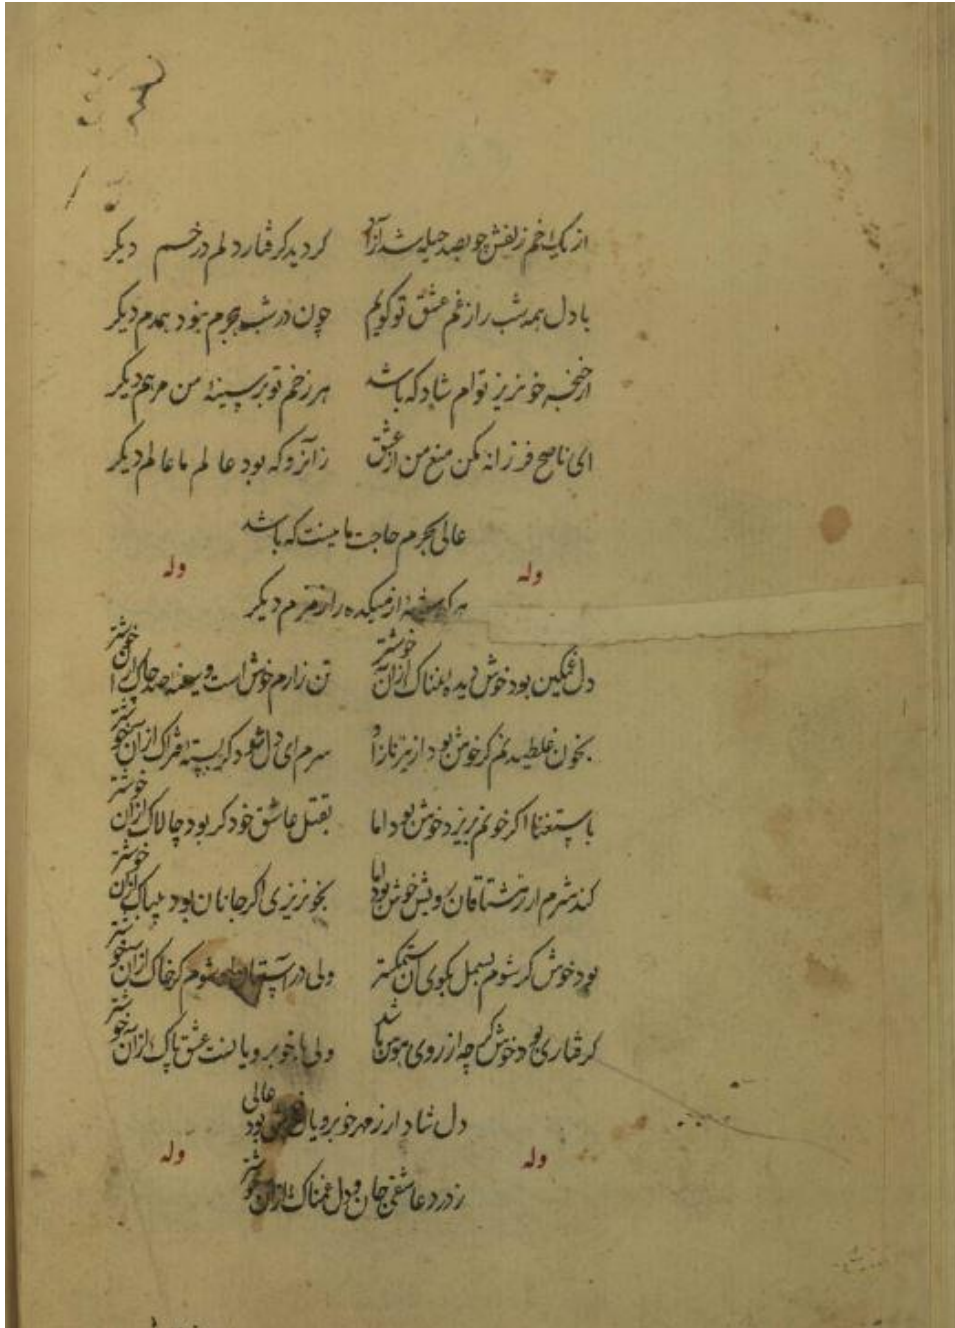 از یک خم زلفش چو بصد حیله شد آزاد گردید گرفتار دلم در خم دیگر
با دل همه شب راز غم عشق تو گویم چون در شب هجرم نبود همدم دیگر
از خنجر خونریز توام شاد که باشد هر زخم تو بر سینهٔ من مرهم دیگر
ای ناصح فرزانه مکن منع من از عشق زانرو که بود عالم ما عالم دیگر
عالی بحرم حاجت ما نیست که باشد
هر گوشهٔ از میکده را زمزم دیگر
وله وله
دل غمگین بود خوش دیده نمناک از آن خوشتر تن زارم خوش است و سینه صد چاک از آن خوشتر
بخون غلطیدنم گر خوش بود از تیر ناز او سرم ای دل شود گر بسته فتراک از آن خوشتر
باستغنا اگر خونم بریزد خوش بود اما بقتل عاشق خود گر بود چالاک از آن خوشتر
کند شرم ار ز مشتاقان رویش خوش بود اما بخونریزی اگر جانان بود بیباک از آن خوشتر
بود خوش گر شوم بسمل بکوی آن ستمگستر ولی در آستان شوم گر خاک از آن خوشتر
گرفتاری بود خوش گرچه از روی هوس باشد ولی با خوبرویانست عشق پاک از آن خوشتر
دل شاد ار ز مهر خوبرویان خوش بود عالی
ز درد عاشقی جان و دل غمناک از آن خوشتر
وله وله